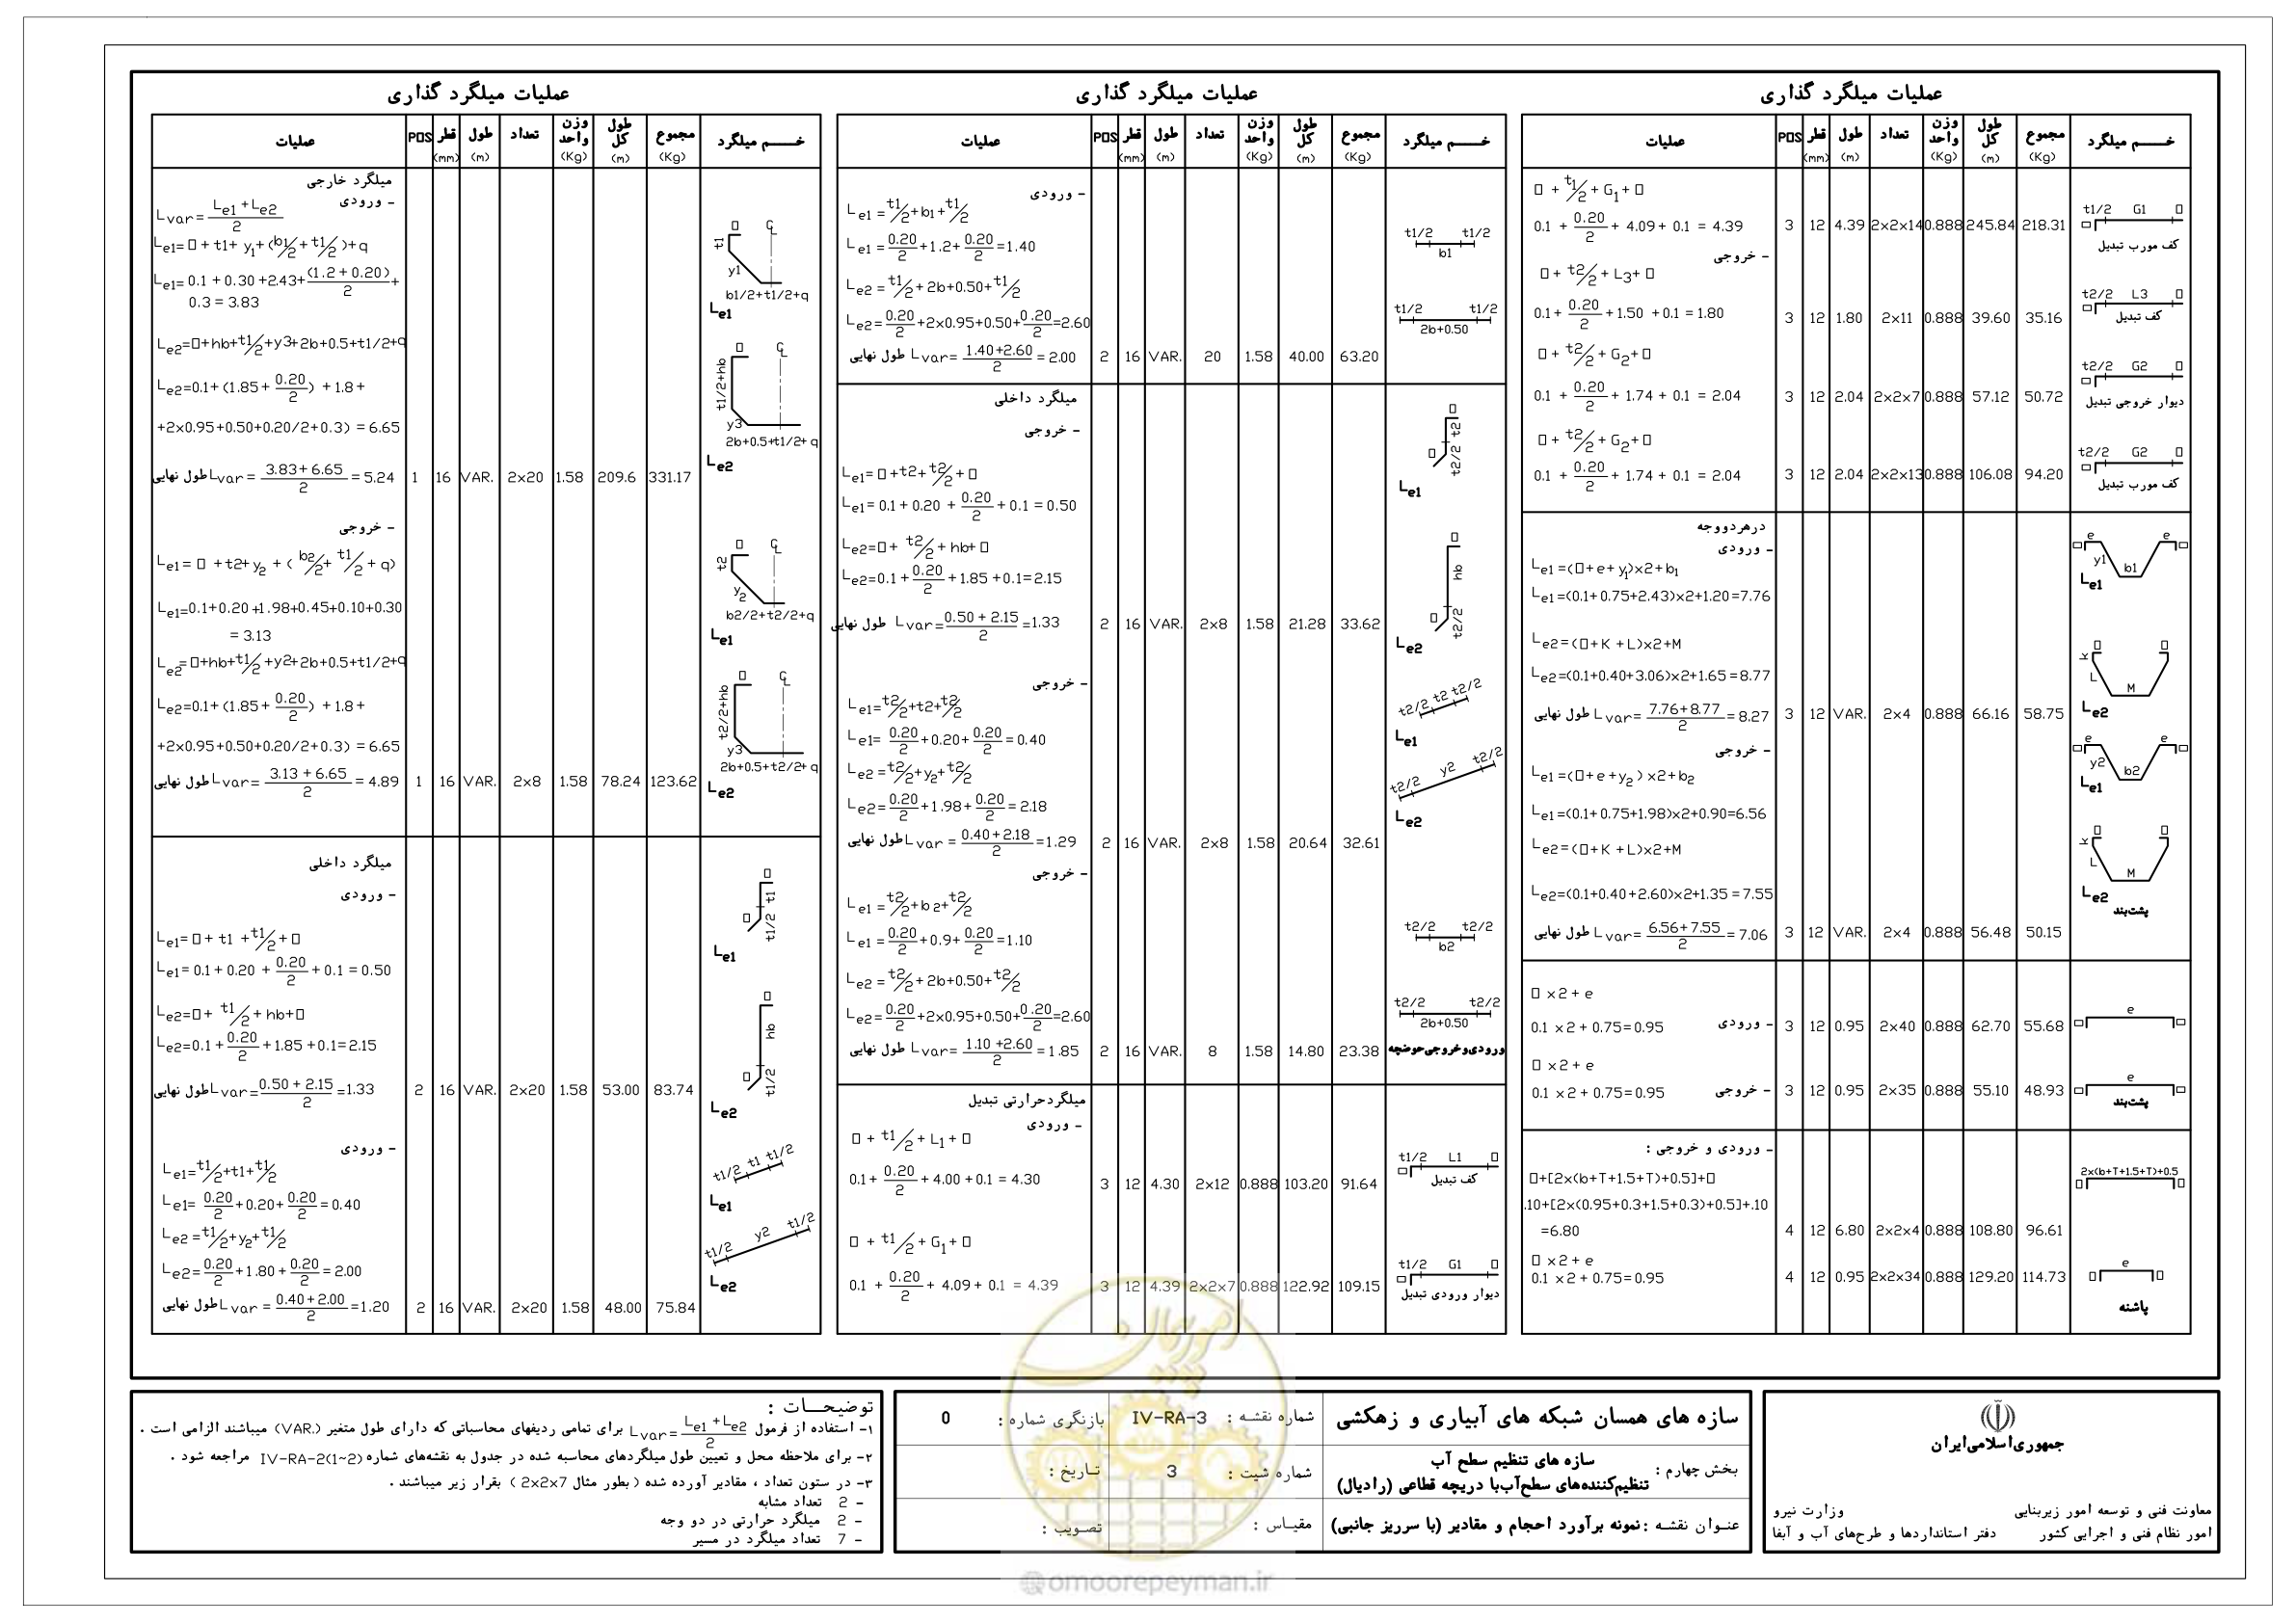 عملیات میلگرد گذاری
عملیات POS قطر (mm) طول (m) تعداد وزن واحد (Kg) طول کل (m) مجموع (Kg) خــــم میلگرد
میلگرد خارجی
- ورودی
Lvar = (Le1 + Le2)/2
Le1= □ + t1+ y1+(b1/2 + t1/2)+q
Le1= 0.1 + 0.30 +2.43+(1.2 + 0.20)/2+
0.3 = 3.83
Le2=□+hb+t1/2+y3+2b+0.5+t1/2+q
Le2=0.1+ (1.85+ 0.20/2) + 1.8 +
+2x0.95+0.50+0.20/2+0.3) = 6.65
طول نهایی Lvar = (3.83+6.65)/2 = 5.24 1 16 VAR. 2x20 1.58 209.6 331.17
□ t1 y1 CL b1/2+t1/2+q
Le1
□ t1/2+hb y3 CL 2b+0.5+t1/2+q
Le2
- خروجی
Le1= □ + t2+ y2 + ( b2/2+ t1/2 + q)
Le1=0.1+0.20 +1.98+0.45+0.10+0.30
= 3.13
Le2=□+hb+t1/2+y2+2b+0.5+t1/2+q
Le2=0.1+ (1.85+ 0.20/2) + 1.8 +
+2x0.95+0.50+0.20/2+0.3) = 6.65
طول نهایی Lvar= (3.13 + 6.65)/2 = 4.89 1 16 VAR. 2x8 1.58 78.24 123.62
□ t2 y2 CL b2/2+t2/2+q
Le1
□ t2/2+hb y3 CL 2b+0.5+t2/2+q
Le2
میلگرد داخلی
- ورودی
Le1= □ + t1 +t1/2+ □
Le1= 0.1 + 0.20 + 0.20/2 + 0.1 = 0.50
Le2=□+ t1/2 + hb+□
Le2=0.1 + 0.20/2 + 1.85 +0.1=2.15
طول نهایی Lvar=(0.50 + 2.15)/2=1.33 2 16 VAR. 2x20 1.58 53.00 83.74
□ t1/2 t1 □
Le1
□ hb t1/2 □
Le2
- ورودی
Le1=t1/2+t1+t1/2
Le1= 0.20/2+0.20+0.20/2=0.40
Le2 =t1/2+y2+t1/2
Le2=0.20/2+1.80+0.20/2=2.00
طول نهایی Lvar = (0.40+2.00)/2=1.20 2 16 VAR. 2x20 1.58 48.00 75.84
t1/2 t1 t1/2
Le1
t1/2 y2 t1/2
Le2
عملیات میلگرد گذاری
عملیات POS قطر (mm) طول (m) تعداد وزن واحد (Kg) طول کل (m) مجموع (Kg) خــــم میلگرد
- ورودی
Le1 =t1/2+b1+t1/2
Le1 =0.20/2+1.2+0.20/2=1.40
Le2 =t1/2+ 2b+0.50+t1/2
Le2=0.20/2+2x0.95+0.50+0.20/2=2.60
طول نهایی Lvar= (1.40+2.60)/2 = 2.00 2 16 VAR. 20 1.58 40.00 63.20
t1/2 t1/2
b1
t1/2 t1/2
2b+0.50
میلگرد داخلی
- خروجی
Le1= □ +t2+t2/2+ □
Le1= 0.1 + 0.20 + 0.20/2 + 0.1 = 0.50
Le2=□+ t2/2 + hb+ □
Le2=0.1 +0.20/2 + 1.85 +0.1=2.15
طول نهایی Lvar=(0.50 + 2.15)/2=1.33 2 16 VAR. 2x8 1.58 21.28 33.62
□ t2/2 t2 □
Le1
□ hb t2/2 □
Le2
- خروجی
Le1=t2/2+t2+t2/2
Le1= 0.20/2+0.20+0.20/2=0.40
Le2 =t2/2+y2+t2/2
Le2=0.20/2+1.98+0.20/2=2.18
طول نهایی Lvar = (0.40+2.18)/2=1.29 2 16 VAR. 2x8 1.58 20.64 32.61
t2/2 t2 t2/2
Le1
t2/2 y2 t2/2
Le2
- خروجی
Le1 =t2/2+b2+t2/2
Le1 =0.20/2+0.9+0.20/2=1.10
Le2 =t2/2+ 2b+0.50+t2/2
Le2=0.20/2+2x0.95+0.50+0.20/2=2.60
طول نهایی Lvar= (1.10 +2.60)/2 = 1.85 2 16 VAR. 8 1.58 14.80 23.38
t2/2 t2/2
b2
t2/2 t2/2
2b+0.50
ورودی و خروجی حوضچه
میلگرد حرارتی تبدیل
- ورودی
□ + t1/2 + L1 + □
0.1+ 0.20/2 + 4.00 + 0.1 = 4.30 3 12 4.30 2x12 0.888 103.20 91.64
t1/2 L1 □
□ کف تبدیل
□ + t1/2 + G1 + □
0.1 + 0.20/2 + 4.09 + 0.1 = 4.39 3 12 4.39 2x2x7 0.888 122.92 109.15
t1/2 G1 □
□ دیوار ورودی تبدیل
عملیات میلگرد گذاری
عملیات POS قطر (mm) طول (m) تعداد وزن واحد (Kg) طول کل (m) مجموع (Kg) خــــم میلگرد
□ + t1/2 + G1 + □
0.1 + 0.20/2 + 4.09 + 0.1 = 4.39 3 12 4.39 2x2x14 0.888 245.84 218.31
t1/2 G1 □
□ کف مورب تبدیل
- خروجی
□ + t2/2 + L3+ □
0.1+ 0.20/2 + 1.50 +0.1 = 1.80 3 12 1.80 2x11 0.888 39.60 35.16
t2/2 L3 □
□ کف تبدیل
□ + t2/2 + G2+ □
0.1 + 0.20/2 + 1.74 + 0.1 = 2.04 3 12 2.04 2x2x7 0.888 57.12 50.72
t2/2 G2 □
□ دیوار خروجی تبدیل
□ + t2/2 + G2+ □
0.1 + 0.20/2 + 1.74 + 0.1 = 2.04 3 12 2.04 2x2x13 0.888 106.08 94.20
t2/2 G2 □
□ کف مورب تبدیل
درهر دو وجه
- ورودی
Le1 =(□+ e+ y1)x2+b1
Le1 =(0.1+0.75+2.43)x2+1.20=7.76
Le2 =(□+K +L)x2+M
Le2=(0.1+0.40+3.06)x2+1.65 = 8.77
طول نهایی Lvar= (7.76+8.77)/2 = 8.27 3 12 VAR. 2x4 0.888 66.16 58.75
□ e y1 b1 e □
Le1
□ k L M □
Le2
- خروجی
Le1 =(□+e +y2 ) x2+b2
Le1 =(0.1+0.75+1.98)x2+0.90=6.56
Le2 =(□+K +L)x2+M
Le2=(0.1+0.40+2.60)x2+1.35 = 7.55
طول نهایی Lvar= (6.56+7.55)/2 = 7.06 3 12 VAR. 2x4 0.888 56.48 50.15
□ e y2 b2 e □
Le1
□ k L M □
Le2
پشت‌بند
□ x2 + e
0.1 x2 + 0.75=0.95 - ورودی 3 12 0.95 2x40 0.888 62.70 55.68
□ e □
□ x2 + e
0.1 x2 + 0.75=0.95 - خروجی 3 12 0.95 2x35 0.888 55.10 48.93
□ e □
پشت‌بند
- ورودی و خروجی :
□+[2x(b+T+1.5+T)+0.5]+□
.10+[2x(0.95+0.3+1.5+0.3)+0.5]+.10
=6.80 4 12 6.80 2x2x4 0.888 108.80 96.61
2x(b+T+1.5+T)+0.5
□ □
□ x2 + e
0.1 x2 + 0.75=0.95 4 12 0.95 2x2x34 0.888 129.20 114.73
□ e □
پاشنه
توضیحـــات :
۱- استفاده از فرمول Lvar=(Le1 +Le2)/2 برای تمامی ردیفهای محاسباتی که دارای طول متغیر (VAR.) میباشند الزامی است .
۲- برای ملاحظه محل و تعیین طول میلگردهای محاسبه شده در جدول به نقشه‌های شماره IV-RA-2(1~2) مراجعه شود .
۳- در ستون تعداد ، مقادیر آورده شده ( بطور مثال 2x2x7 ) بقرار زیر میباشند .
- 2 تعداد مشابه
- 2 میلگرد حرارتی در دو وجه
- 7 تعداد میلگرد در مسیر
سازه های همسان شبکه های آبیاری و زهکشی
شماره نقشه : IV-RA-3
بازنگری شماره : 0
بخش چهارم : سازه های تنظیم سطح آب
تنظیم‌کننده‌های سطح‌آب‌با دریچه قطاعی (رادیال)
شماره شیت : 3
تاریخ :
عنـوان نقشـه : نمونه برآورد احجام و مقادیر (با سرریز جانبی)
مقیـاس :
تصـویب :
جمهوری‌اسلامی‌ایران
معاونت فنی و توسعه امور زیربنایی
وزارت نیرو
امور نظام فنی و اجرایی کشور
دفتر استانداردها و طرح‌های آب و آبفا
امور پیمان
@omoorepeyman.ir